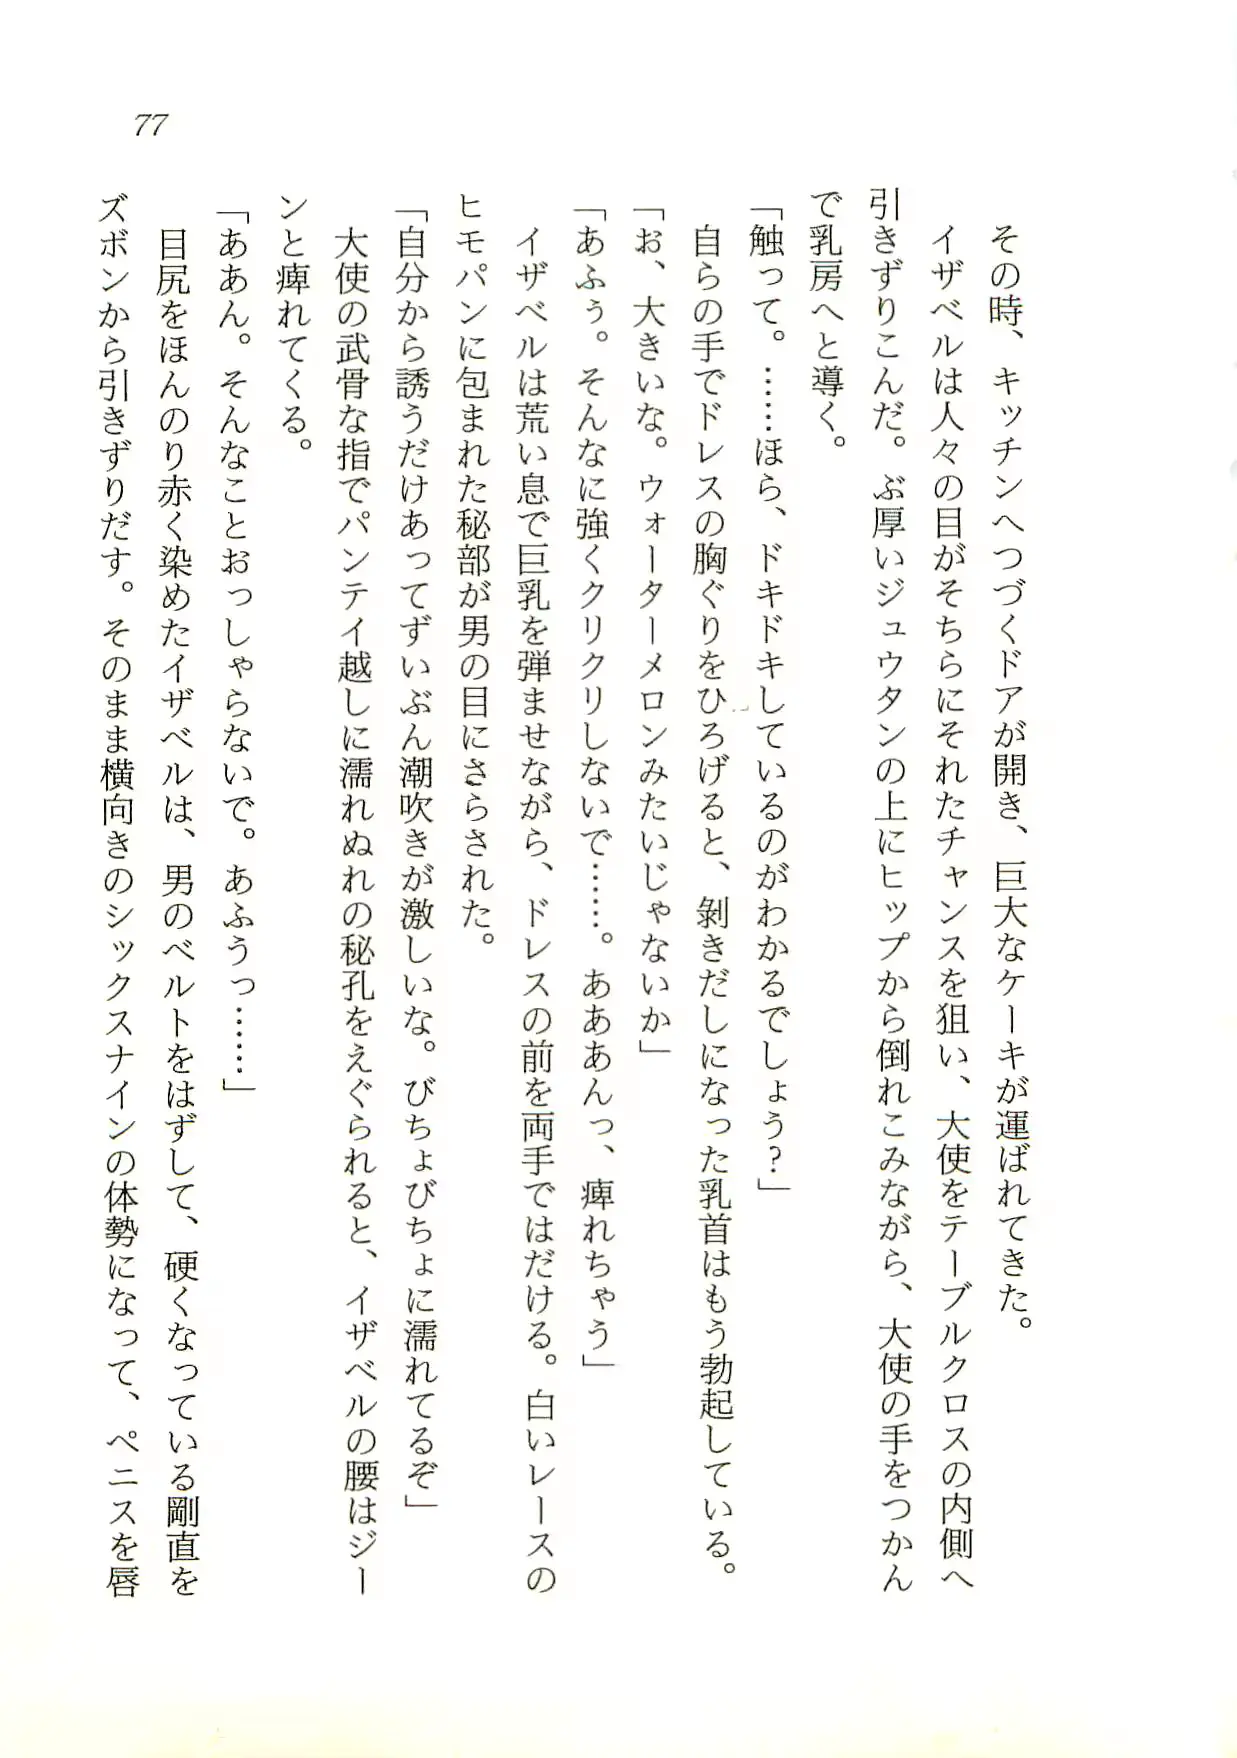 77
その時、キッチンへつづくドアが開き、巨大なケーキが運ばれてきた。
イザベルは人々の目がそちらにそれたチャンスを狙い、大使をテーブルクロスの内側へ
引きずりこんだ。ぶ厚いジュウタンの上にヒップから倒れこみながら、大使の手をつかん
で乳房へと導く。
「触って。……ほら、ドキドキしているのがわかるでしょう?」
自らの手でドレスの胸ぐりをひろげると、剝きだしになった乳首はもう勃起している。
「お、大きいな。ウォーターメロンみたいじゃないか」
「あふぅ。そんなに強くクリクリしないで……。あああんっ、痺れちゃう」
イザベルは荒い息で巨乳を弾ませながら、ドレスの前を両手ではだける。白いレースの
ヒモパンに包まれた秘部が男の目にさらされた。
「自分から誘うだけあってずいぶん潮吹きが激しいな。びちょびちょに濡れてるぞ」
大使の武骨な指でパンテイ越しに濡れぬれの秘孔をえぐられると、イザベルの腰はジー
ンと痺れてくる。
「ああん。そんなことおっしゃらないで。あふうっ……」
目尻をほんのり赤く染めたイザベルは、男のベルトをはずして、硬くなっている剛直を
ズボンから引きずりだす。そのまま横向きのシックスナインの体勢になって、ペニスを唇